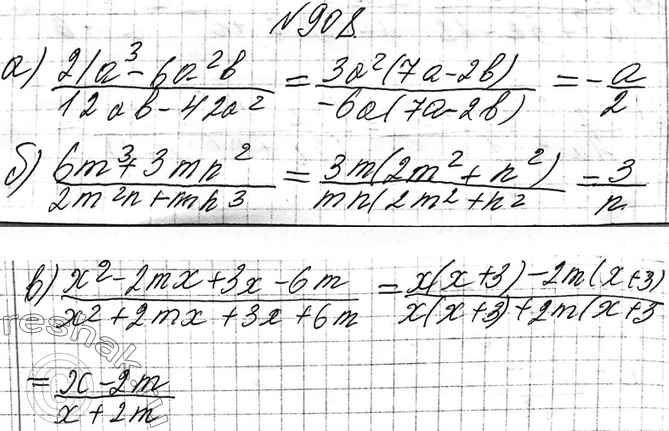 №908.
а) (21a³ - 6a²b)/(12ab - 42a²) = (3a²(7a - 2b))/(-6a(7a - 2b)) = -a/2
б) (6m³ + 3mn²)/(2m²n + mn³) = (3m(2m² + n²))/(mn(2m² + n²) = 3/n
в) (x² - 2mx + 3x - 6m)/(x² + 2mx + 3x + 6m) = (x(x+3) - 2m(x+3))/(x(x+3) + 2m(x+3)
= (x - 2m)/(x + 2m)
reshak.ru